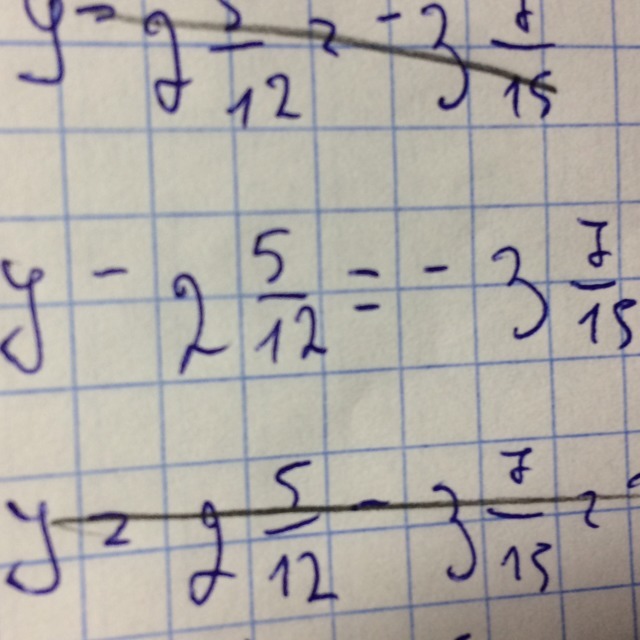 y - 2 5/12 = - 3 7/15
y - 2 5/12 = - 3 7/15
y = 2 5/12 - 3 7/15 =